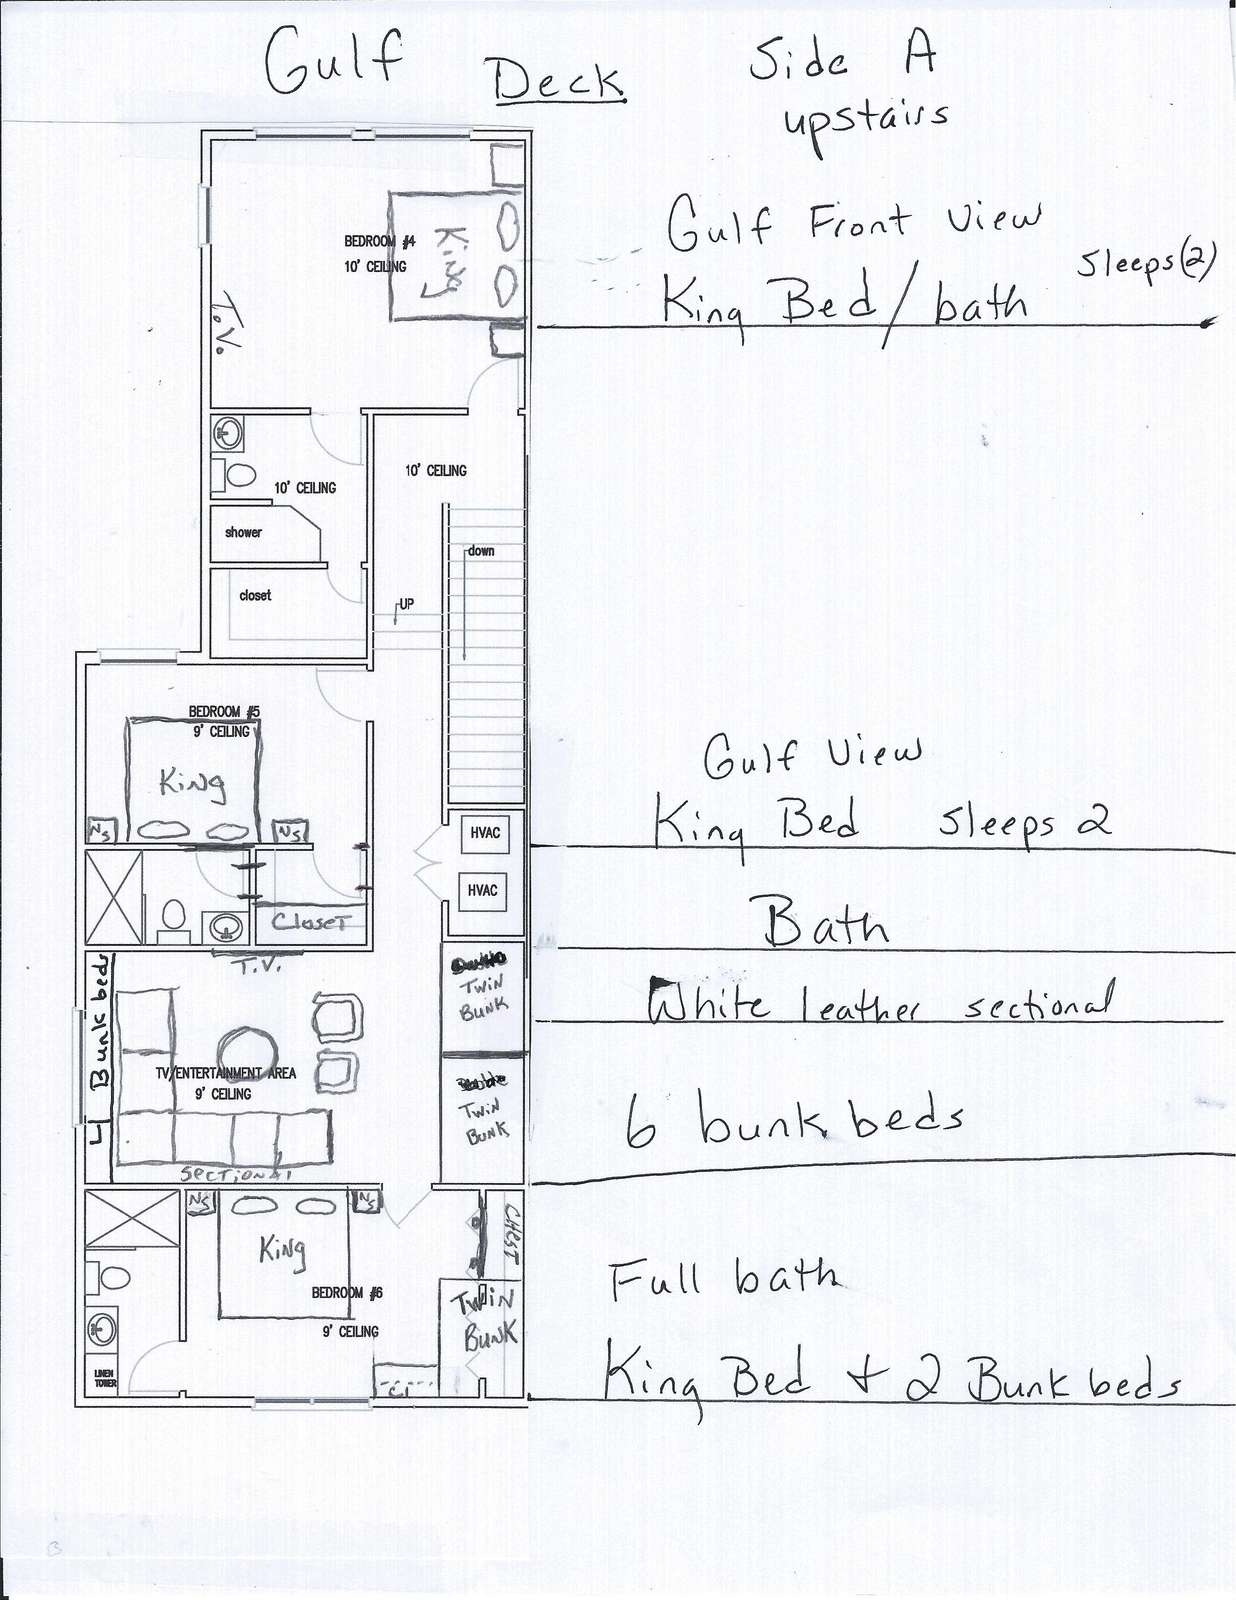 Gulf
Deck
Side A
upstairs
Gulf Front View
King Bed/bath Sleeps(2)
BEDROOM #4
10' CEILING
King
T.V.
10' CEILING
10' CEILING
shower
down
closet
UP
BEDROOM #5
9' CEILING
King
NS
NS
Gulf View
King Bed Sleeps 2
HVAC
HVAC
Closet
Bath
T.V.
TWIN
BUNK
White leather sectional
Bunk beds
TV/ENTERTAINMENT AREA
9' CEILING
TWIN
BUNK
6 bunk beds
Sectional
NS
NS
King
CHEST
BEDROOM #6
9' CEILING
TWIN
BUNK
Full bath
LINEN
TOWER
King Bed + 2 Bunk beds